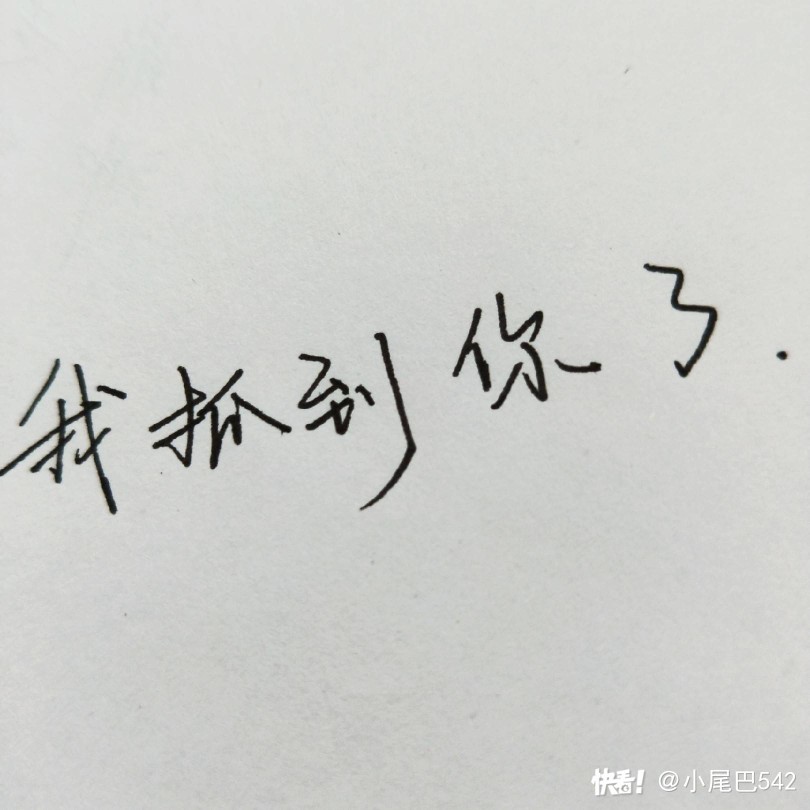 我抓到你了.
快看! @小尾巴542